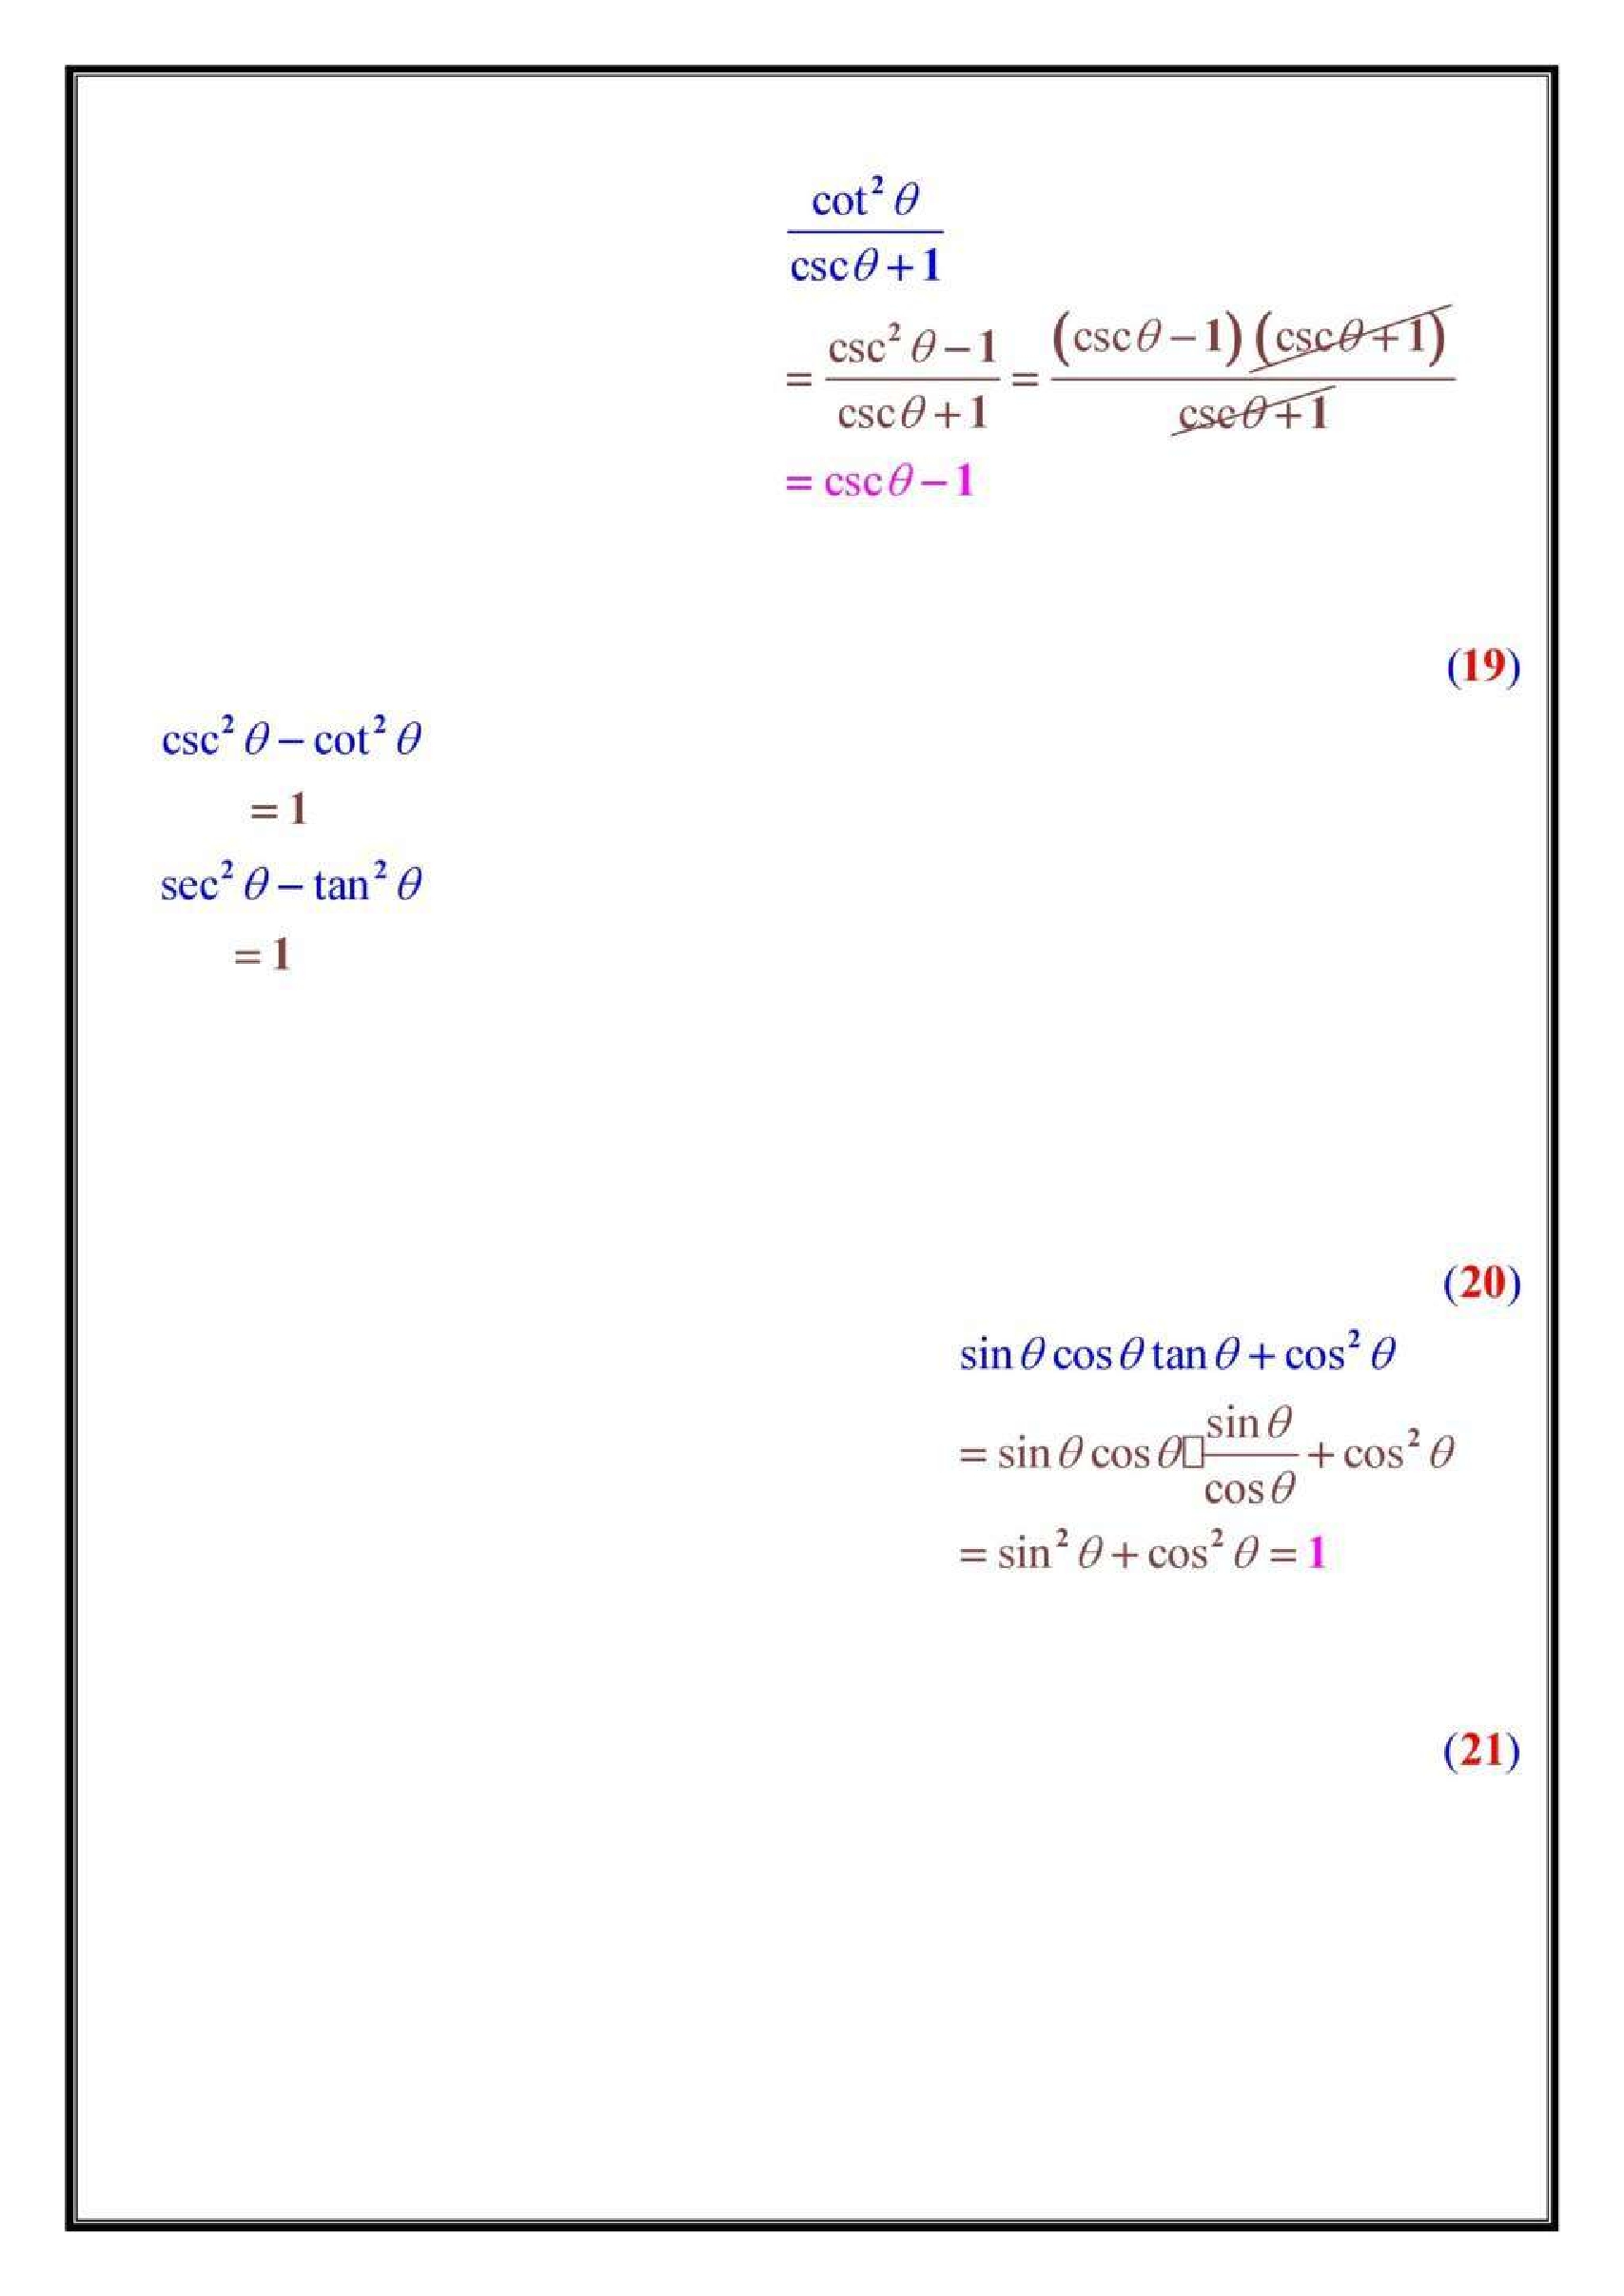 cot² θ
csc θ + 1
= csc² θ − 1 / csc θ + 1 = (csc θ − 1) (csc θ + 1) / csc θ + 1
= csc θ − 1
(19)
csc² θ − cot² θ
= 1
sec² θ − tan² θ
= 1
(20)
sin θ cos θ tan θ + cos² θ
= sin θ cos θ▯ sin θ / cos θ + cos² θ
= sin² θ + cos² θ = 1
(21)